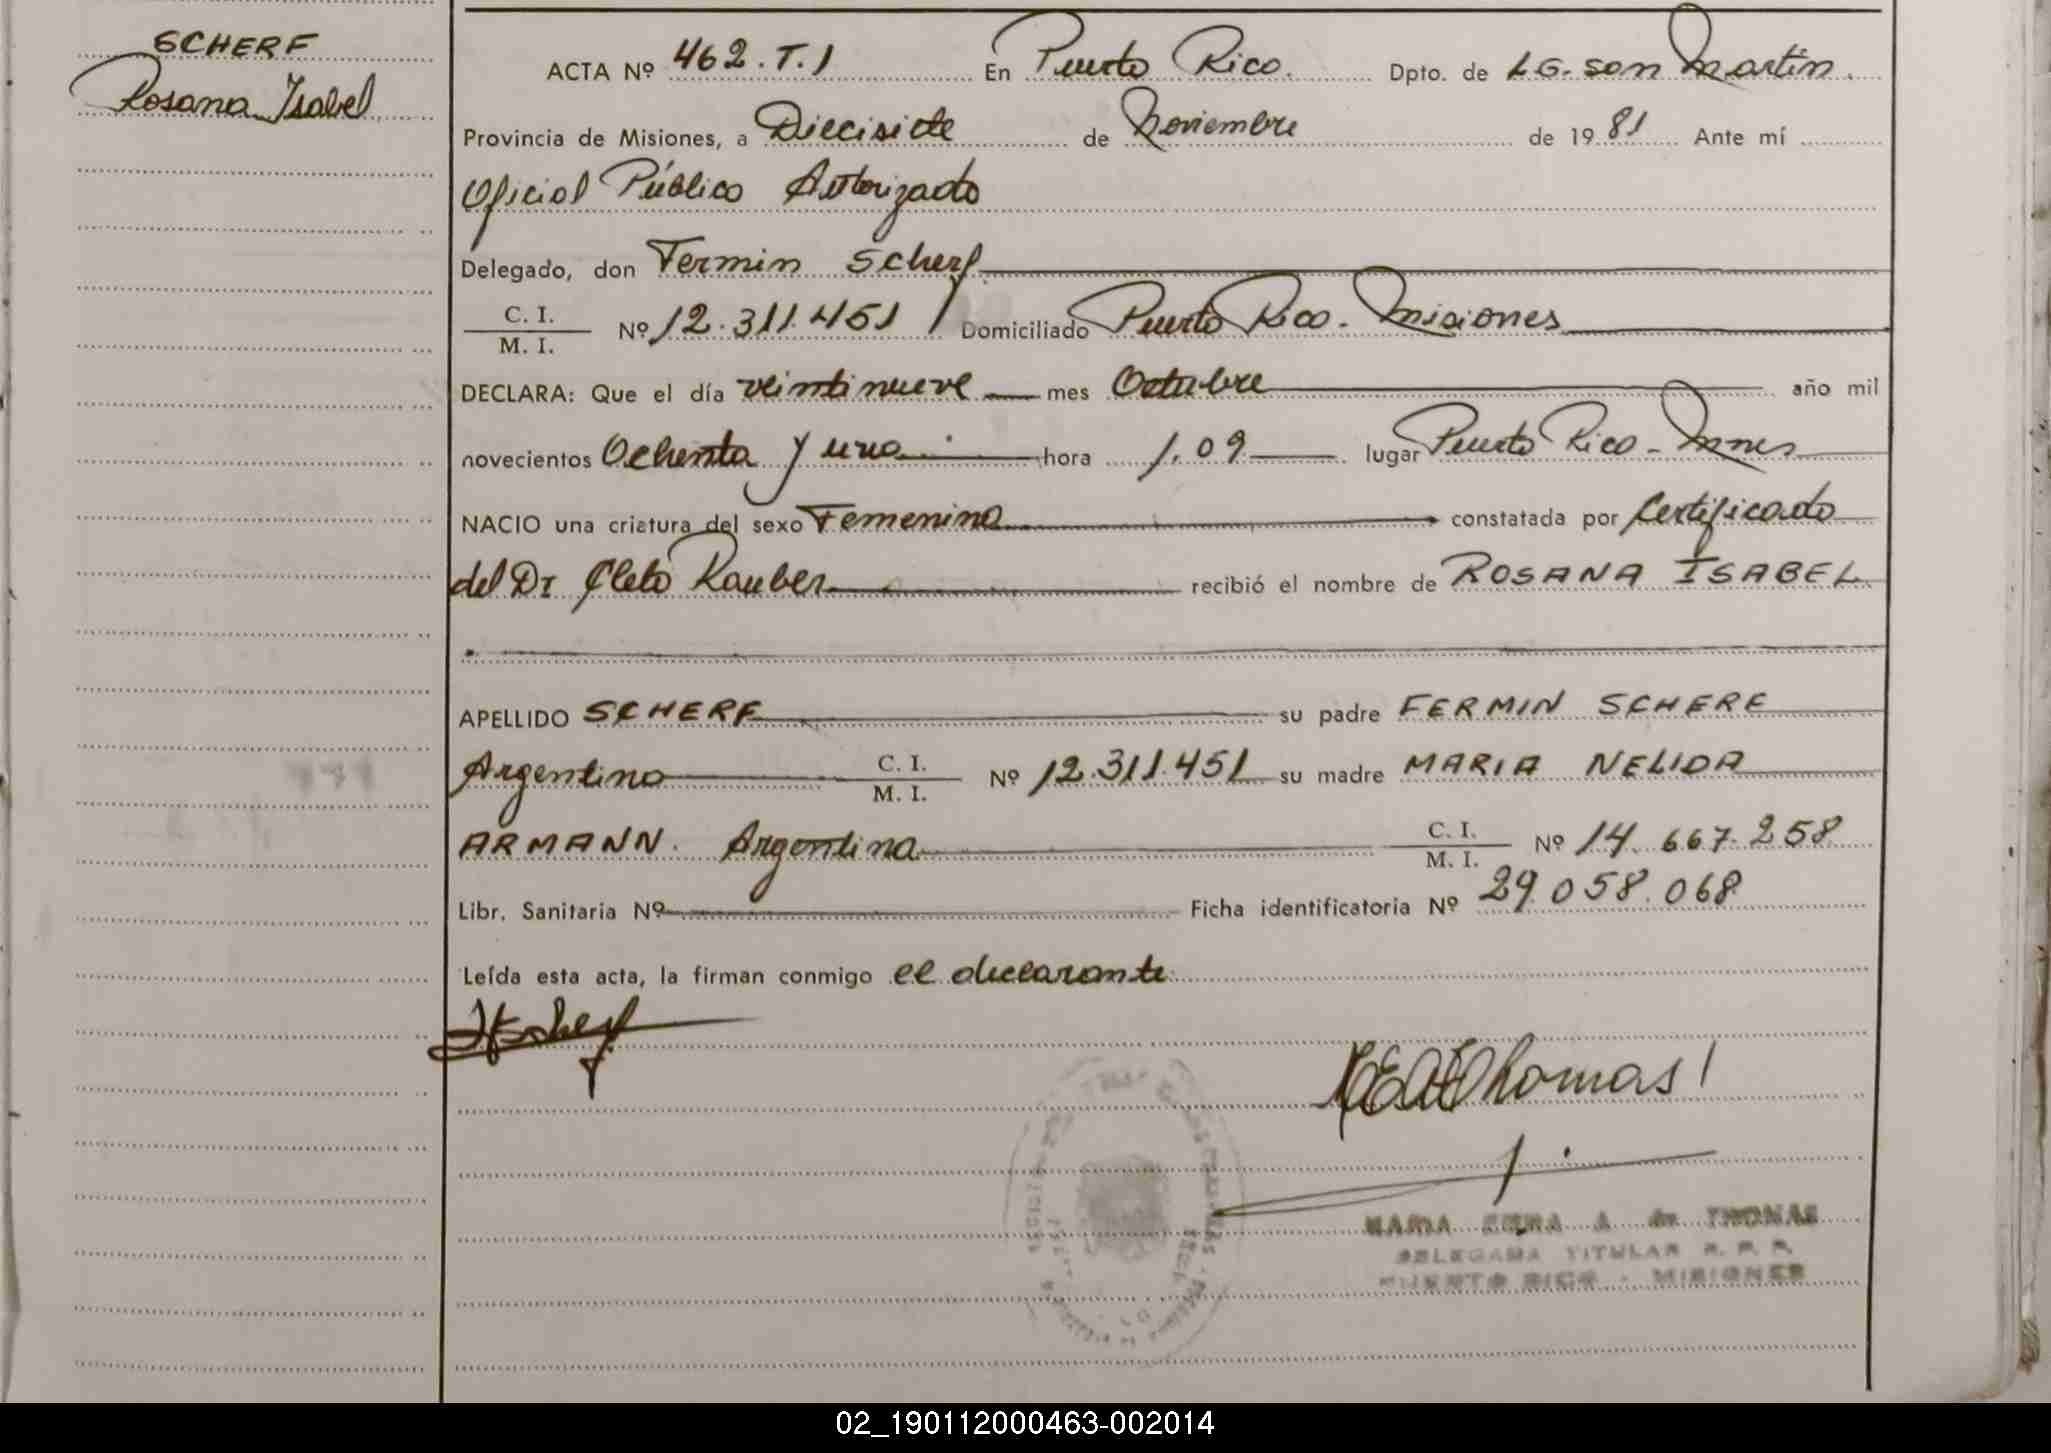 SCHERF
Rosana Isabel
ACTA Nº 462.T.1 En Puerto Rico. Dpto. de LG. San Martín.
Provincia de Misiones, a Diecisiete de Noviembre de 1981 Ante mí
Oficial Público Autorizado
Delegado, don Fermin Scherf
C. I.
M. I. Nº 12.311.451 Domiciliado Puerto Rico - Misiones
DECLARA: Que el día veintinueve mes Octubre año mil
novecientos Ochenta y uno hora 1.09 lugar Puerto Rico - Mnes
NACIO una criatura del sexo Femenino constatada por Certificado
del Dr Cleto Rauber recibió el nombre de ROSANA ISABEL
APELLIDO SCHERF su padre FERMIN SCHERF
Argentino C. I. M. I. Nº 12.311.451 su madre MARIA NELIDA
ARMANN. Argentina C. I. M. I. Nº 14.667.258
Libr. Sanitaria Nº Ficha identificatoria Nº 29.058.068
Leída esta acta, la firman conmigo el declarante
MARIA A de THOMAS
DELEGADA TITULAR R. P. P.
PUERTO RICO - MISIONES
02_190112000463-002014